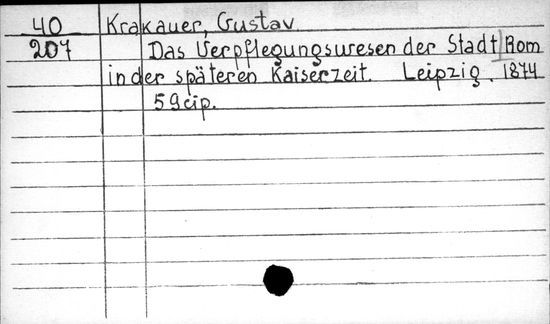 40 Krakauer, Gustav
207 Das Verpflegungswesen der Stadt Rom
in der späteren Kaiserzeit. Leipzig. 1874
59 cip.